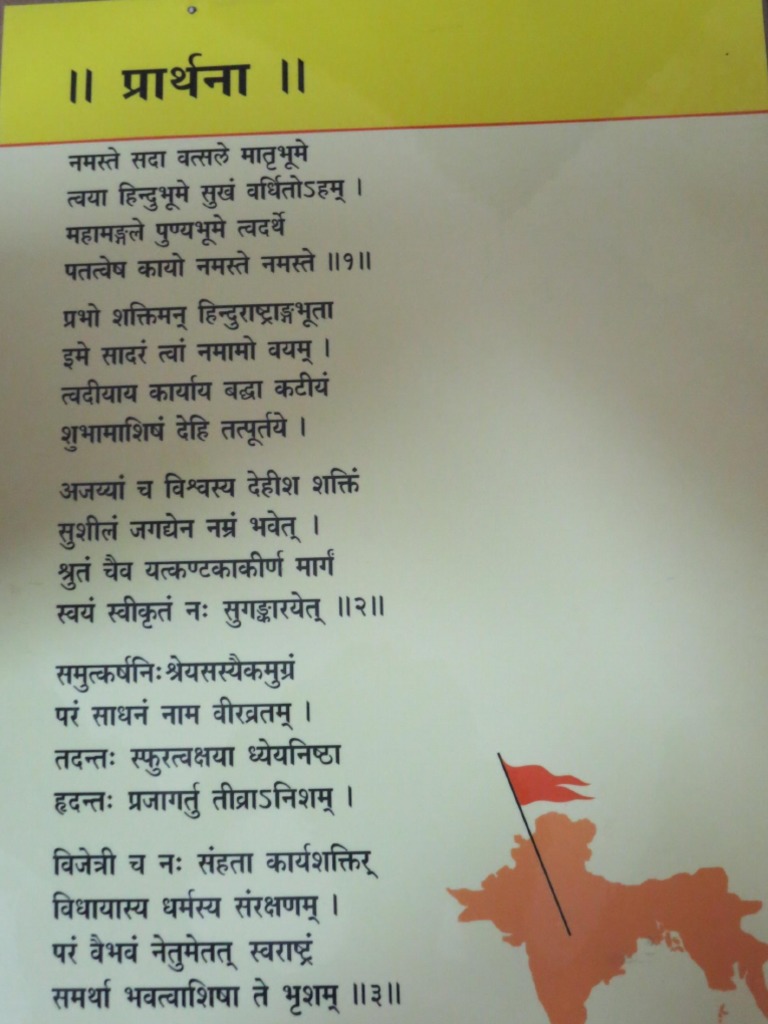 ॥ प्रार्थना ॥
नमस्ते सदा वत्सले मातृभूमे
त्वया हिन्दुभूमे सुखं वर्धितोऽहम् ।
महामङ्गले पुण्यभूमे त्वदर्थे
पतत्वेष कायो नमस्ते नमस्ते ॥१॥
प्रभो शक्तिमन् हिन्दुराष्ट्राङ्गभूता
इमे सादरं त्वां नमामो वयम् ।
त्वदीयाय कार्याय बद्धा कटीयं
शुभामाशिषं देहि तत्पूर्तये ।
अजय्यां च विश्वस्य देहीश शक्तिं
सुशीलं जगद्येन नम्रं भवेत् ।
श्रुतं चैव यत्कण्टकाकीर्ण मार्गं
स्वयं स्वीकृतं नः सुगङ्कारयेत् ॥२॥
समुत्कर्षनिःश्रेयसस्यैकमुग्रं
परं साधनं नाम वीरव्रतम् ।
तदन्तः स्फुरत्वक्षया ध्येयनिष्ठा
हृदन्तः प्रजागर्तु तीव्राऽनिशम् ।
विजेत्री च नः संहता कार्यशक्तिर्
विधायास्य धर्मस्य संरक्षणम् ।
परं वैभवं नेतुमेतत् स्वराष्ट्रं
समर्था भवत्वाशिषा ते भृशम् ॥३॥